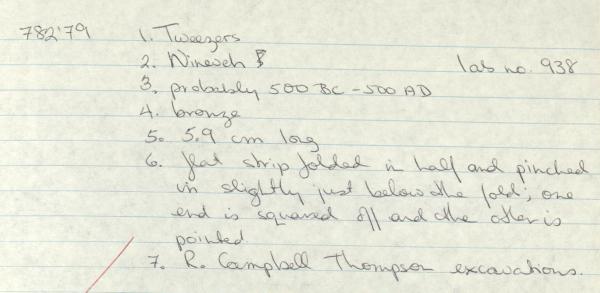 782'79 1. Tweezers
2. Nineveh
lab no. 938
3. probably 500 BC - 500 AD
4. bronze
5. 5.9 cm long
6. flat strip folded in half and pinched
in slightly just below the fold; one
end is squared off and the other is
pointed
7. R. Campbell Thompson excavations.